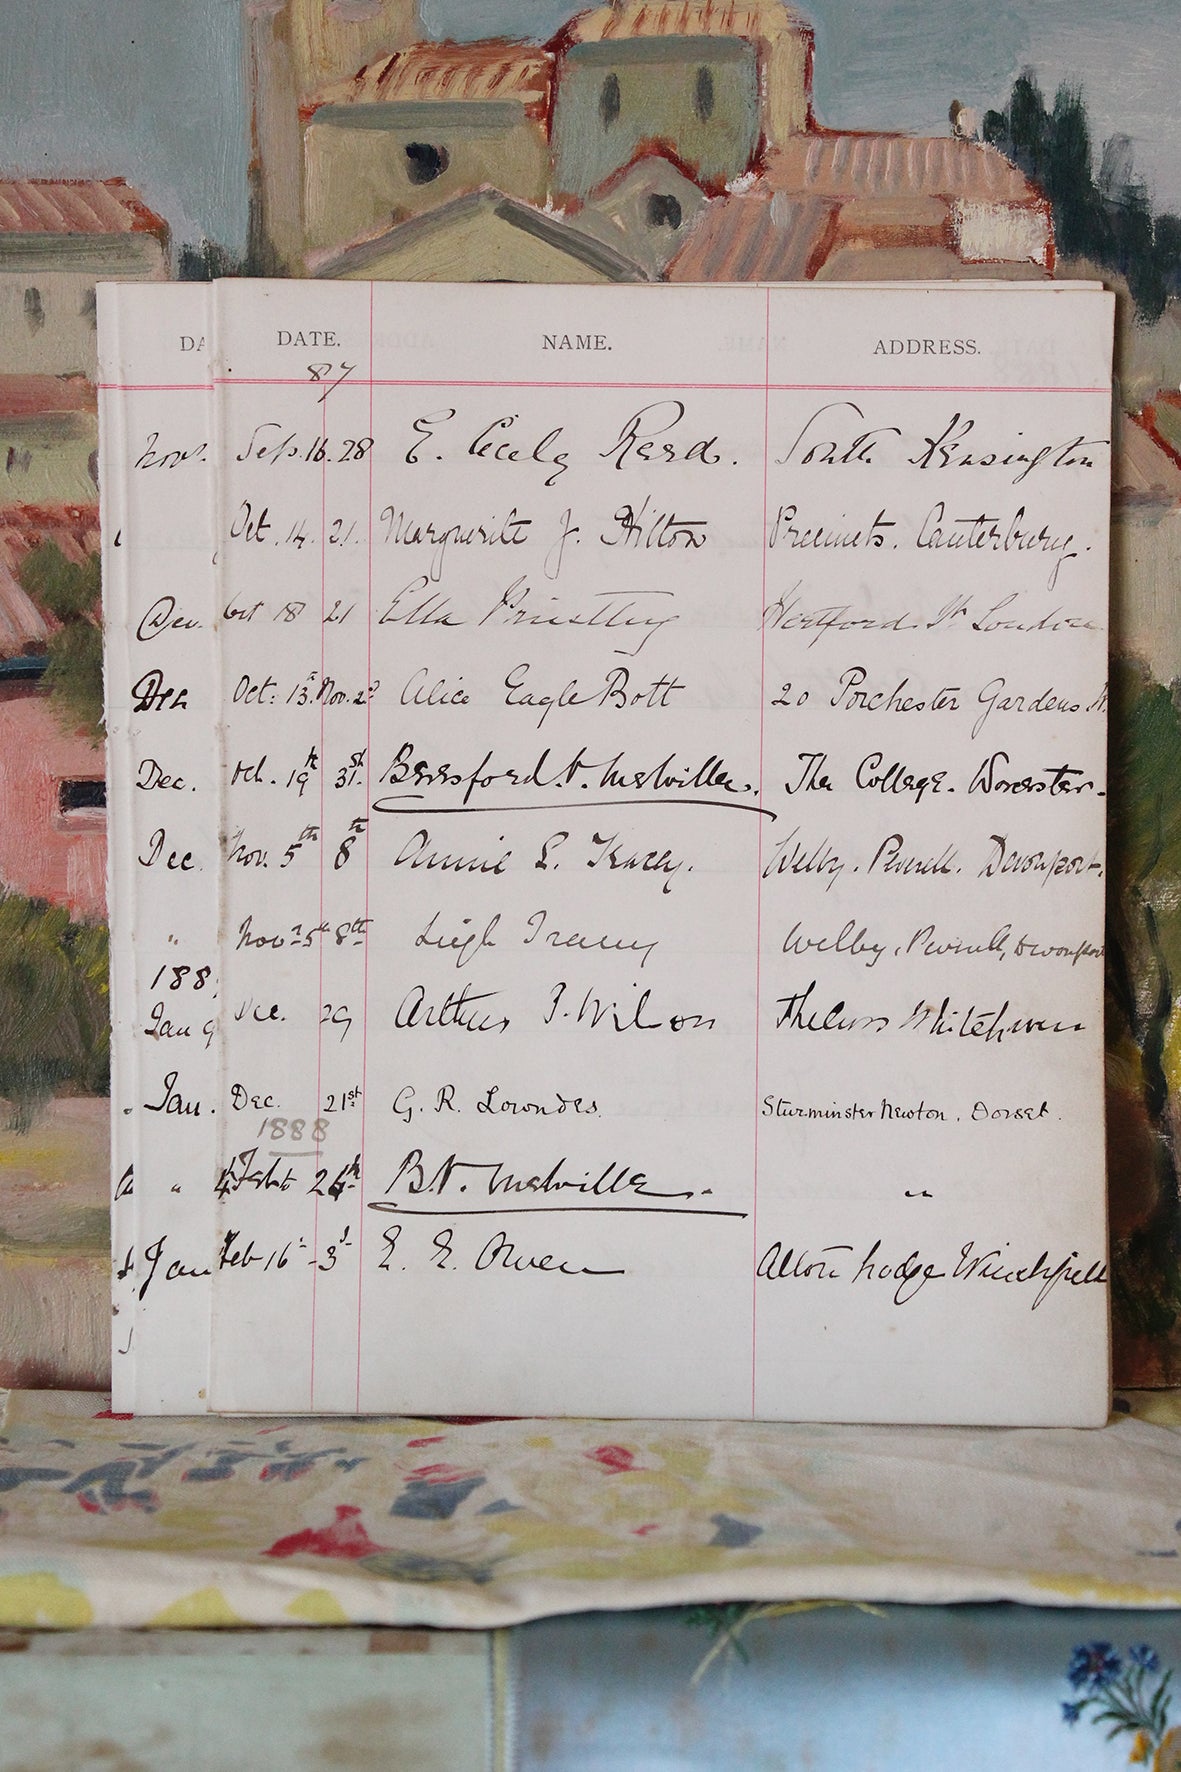 DA DATE. NAME. ADDRESS.
87
Nov. Sep. 16. 28 E. Cicely Reed. South Kensington
Oct. 14. 21. Marguerite J. Hilton Precincts. Canterbury.
Dec. Oct 18 21 Ella Priestley Hertford St London
Dec Oct: 13. Nov. 2d Alice Eagle Bott 20 Porchester Gardens
Dec. Oct. 19th 31st Beresford V. Melville. The College. Worcester.
Dec. Nov. 5th 8th Annie L. Tracey. Welby. Peverell. Devonport.
" Novr 5th 8th Leigh Tracey Welby, Peverell, Devonport
188
Jan 9 Dec. 29 Arthur Wilson Whitehaven
Jan. Dec. 21st G. R. Lowndes. Sturminster Newton. Dorset.
1888
" Feb 26th B. V. Melville. "
Jan Feb 16 - 3d E. E. Owen Alton Lodge Winchfield